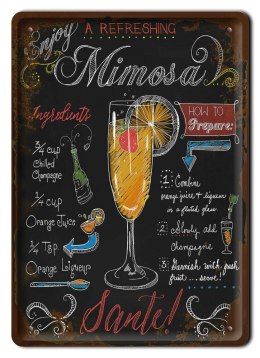 Enjoy
A REFRESHING
Mimosa
Ingredients
3/4 cup
Chilled
Champagne
1/4
cup
Orange Juice
3/4 Tsp
Orange Liqueur
HOW TO
Prepare:
1. Combine
orange juice & liqueur
in a fluted glass
2. Slowly add
champagne
3. Garnish with fresh
fruit... serve!
Santé!